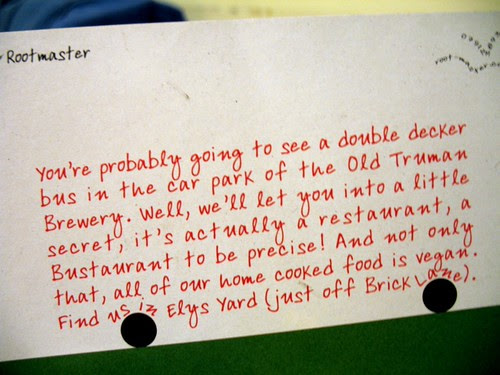 Rootmaster
You're probably going to see a double decker
bus in the car park of the Old Truman
Brewery. Well, we'll let you into a little
secret, it's actually a restaurant, a
Bustaurant to be precise! And not only
that, all of our home cooked food is vegan.
Find us in Elys Yard (just off Brick Lane).